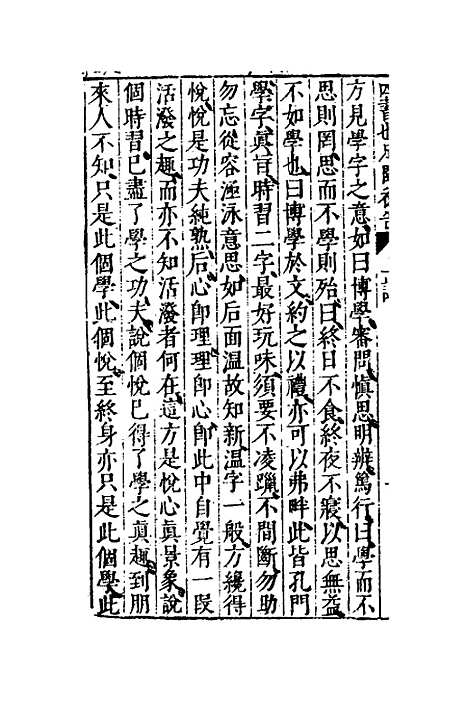 四書也足園初告
方見學字之意如曰博學審問慎思明辨篤行曰學而不
思則罔思而不學則殆曰終日不食終夜不寢以思無益
不如學也曰博學於文約之以禮亦可以弗畔此皆孔門
學字真旨時習二字最好玩味須要不凌躐不間斷勿助
勿忘從容涵泳意思如后面温故知新温字一般方纔得
悅悅是功夫純熟后心卽理理卽心卽此中自覺有一段
活潑之趣而亦不知活潑者何在這方是悅心真景象說
個時習已盡了學之功夫說個悅已得了學之真趣到朋
來人不知只是此個學此個悅至終身亦只是此個學此